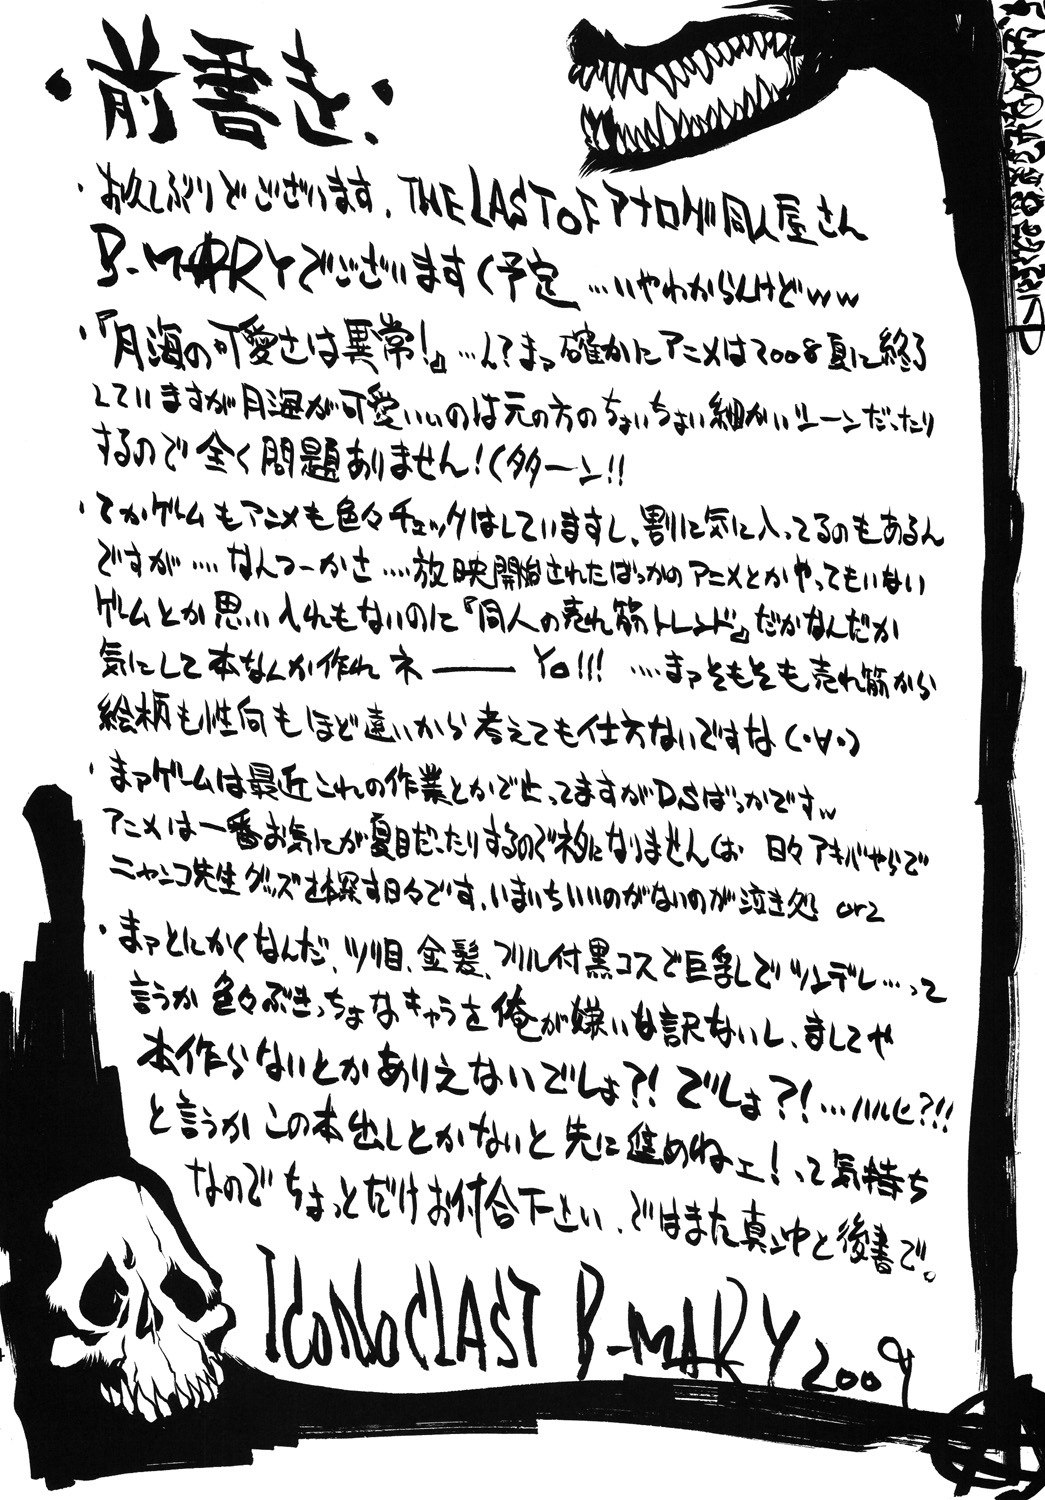 ・前書き・
・お久しぶりでございます、THE LAST OF アナログ同人屋さん
B-MARYでございます(予定 …いやわからんけどww
・『月海の可愛さは異常!』…え?まァ確かにアニメは2008夏に終了
していますが月海が可愛いいのは元の方のちょいちょい細かいシーンだったり
するので全く問題ありません!(タターン!!
・てかゲームもアニメも色々チェックはしていますし、割に気に入ってるのもあるん
ですが‥‥なんつーかさ‥‥放映開始されたばっかのアニメとかやってもいない
ゲームとか思い入れもないのに『同人の売れ筋トレンド』だかなんだか
気にして本なんか作れネ――Yo!!! ‥‥まァそもそも売れ筋から
絵柄も性向もほど遠いから考えても仕方ないですな(・∀・)
・まァゲームは最近これの作業とかで止ってますがDSばっかですw
アニメは一番お気にが夏目だったりするのでネタになりませんしお 日々アキバやらで
ニャンコ先生グッズを探す日々です、いまいちいいのがないのが泣き処 orz
・まァとにかくなんだ、ツリ目、金髪、フリル付黒コスで巨乳でツンデレ…って
言うか色々ぶきっちょなキャラを俺が嫌いな訳ないし、ましてや
本作らないとかありえないでしょ?!でしょ?!…ハルヒ?!!
と言うかこの本出しとかないと先に進めねェ!って気持ち
なのでちょっとだけお付合下さい、ではまた真ン中と後書で。
IcoNoCLAST B-MARY 2009